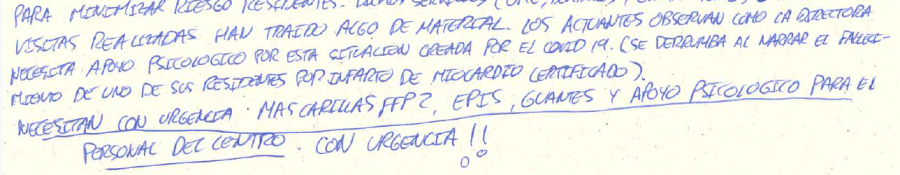 PARA MINIMIZAR RIESGO RESIDENTES.
VISITAS REALIZADAS HAN TRAIDO ALGO DE MATERIAL. LOS ACTUANTES OBSERVAN COMO LA DIRECTORA
NECESITA APOYO PSICOLOGICO POR ESTA SITUACION CREADA POR EL COVID 19. (SE DERRUMBA AL NARRAR EL FALLECI-
MIENTO DE UNO DE SUS RESIDENTES POR INFARTO DE MIOCARDIO CERTIFICADO).
NECESITAN CON URGENCIA MASCARILLAS FFP2, EPIS, GUANTES Y APOYO PSICOLOGICO PARA EL
PERSONAL DEL CENTRO. CON URGENCIA!!